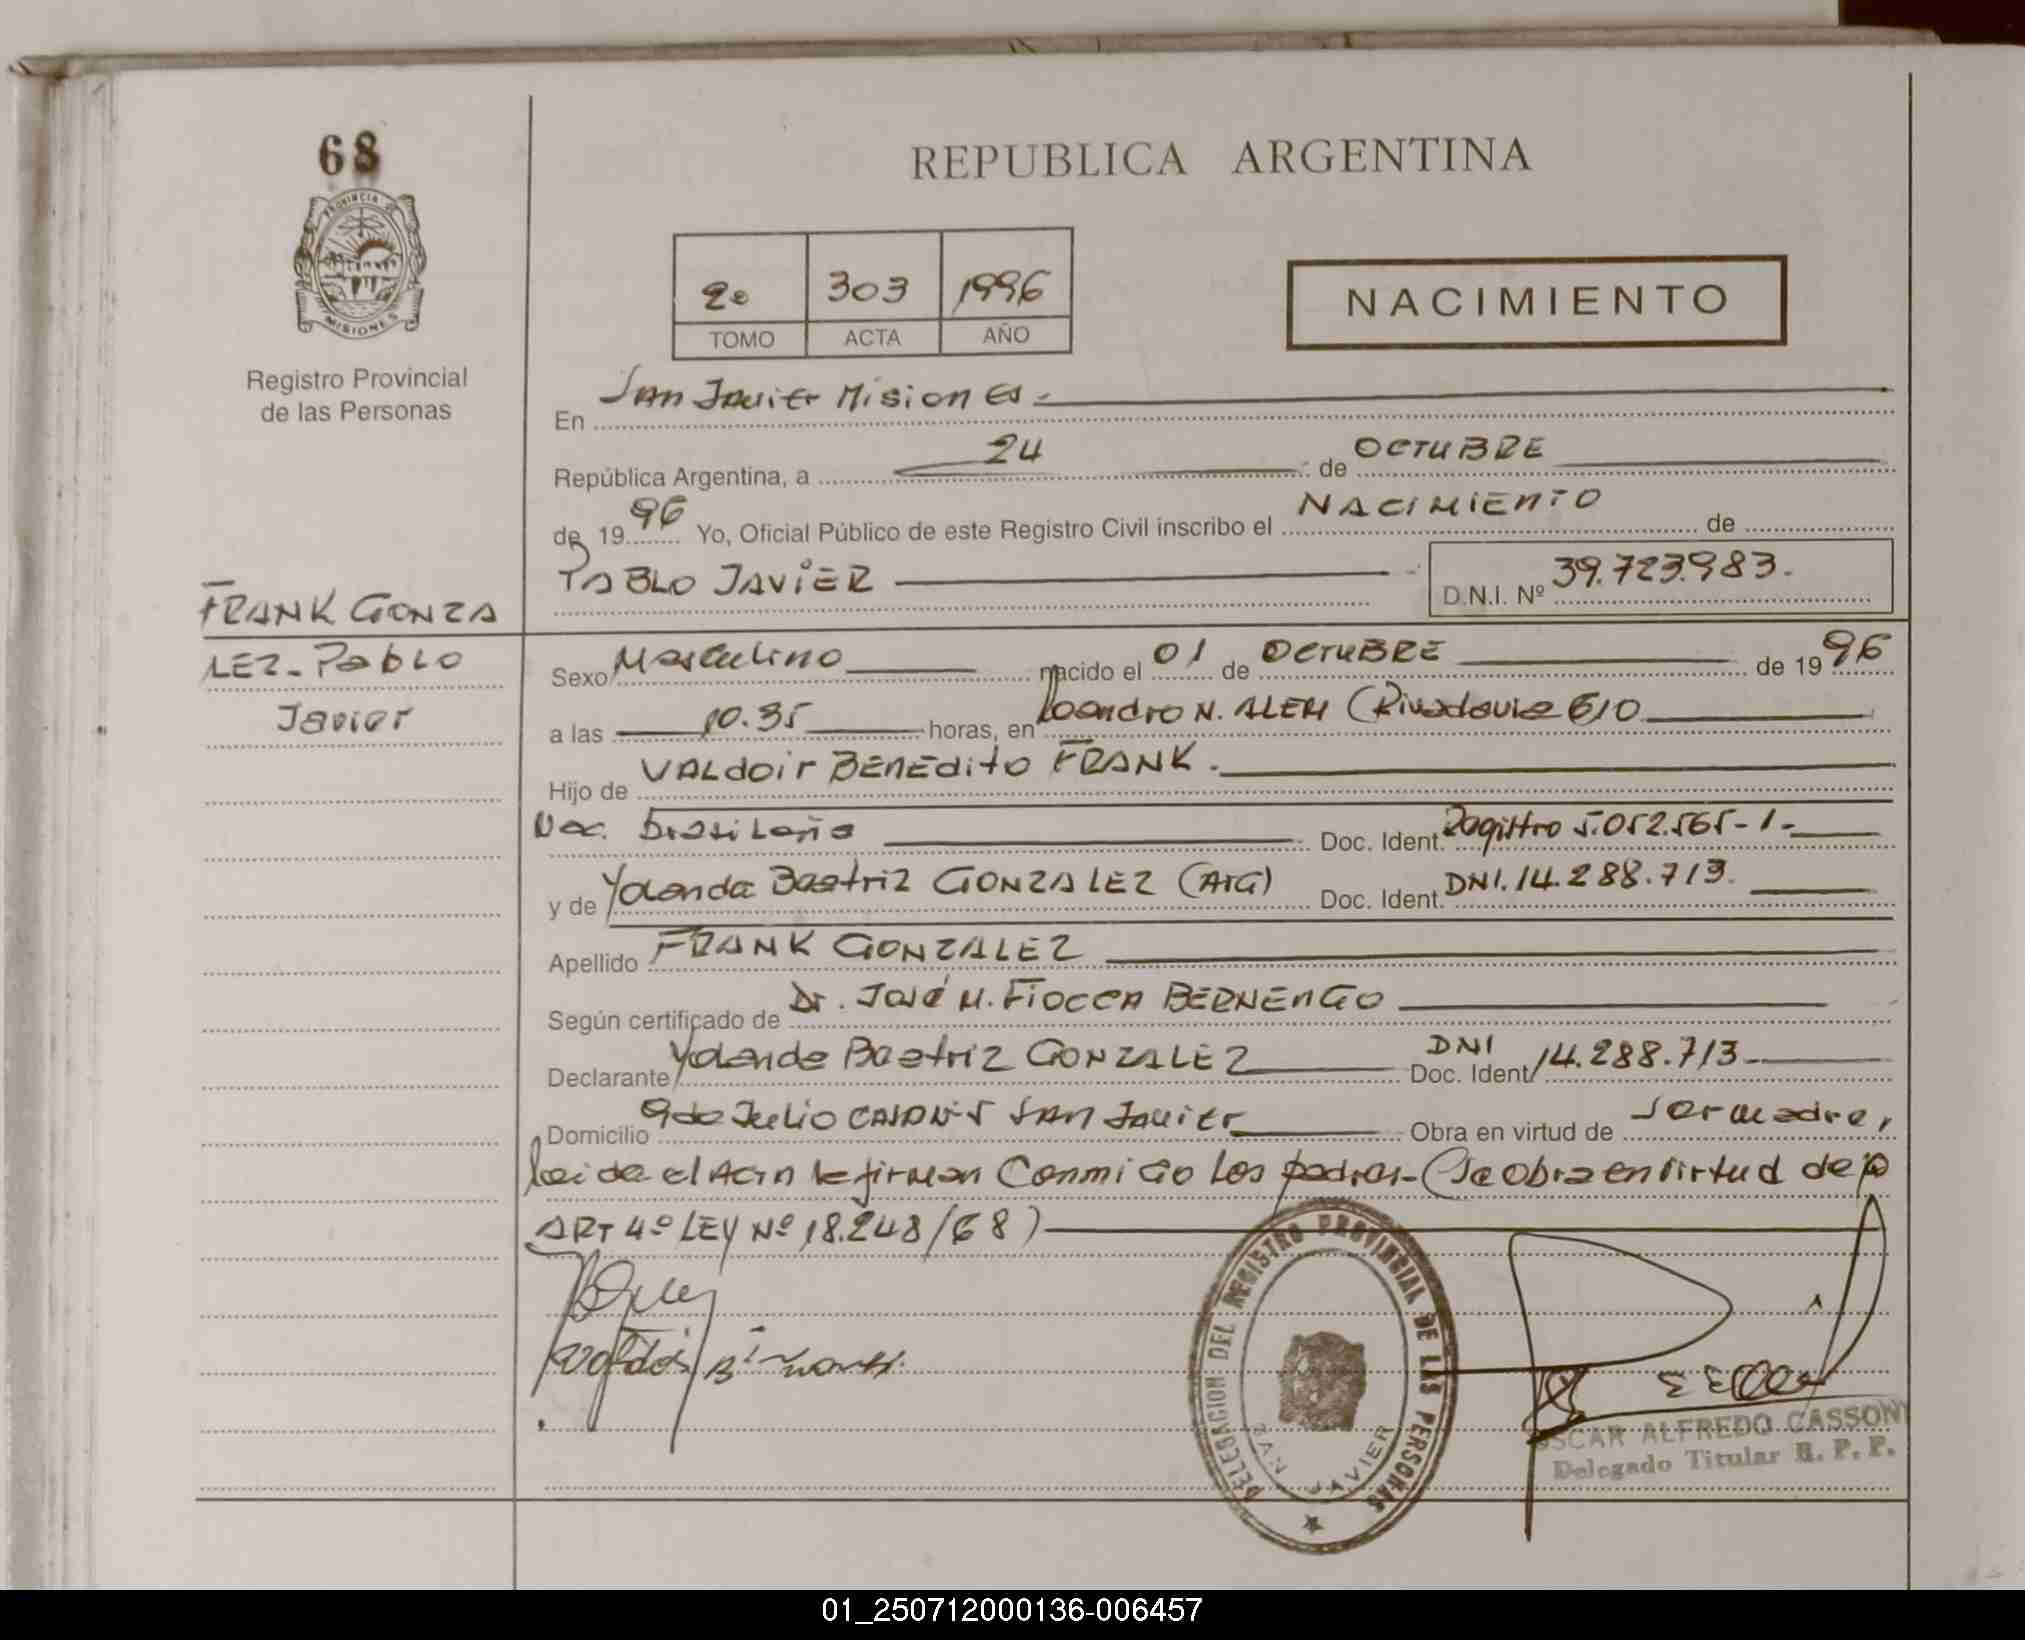 68
PROVINCIA
MISIONES
Registro Provincial
de las Personas
FRANK GONZA
LEZ - Pablo
Javier
REPUBLICA ARGENTINA
2º 303 1996
TOMO ACTA AÑO
NACIMIENTO
En San Javier Misiones.
República Argentina, a 24 de OCTUBRE
de 1996 Yo, Oficial Público de este Registro Civil inscribo el NACIMIENTO de
PABLO JAVIER D.N.I. Nº 39.723.983.
Sexo Masculino nacido el 01 de OCTUBRE de 1996
a las 10.35 horas, en Leandro N. ALEM (Rivadavia 610
Hijo de VALdoir BENEdito FRANK.
Nac. brasileña Doc. Ident. Registro 5.052.565-1-
y de Yolanda Beatriz GONZALEZ (ArG) Doc. Ident. DNI. 14.288.713.
Apellido FRANK GONZALEZ
Según certificado de Dr. José M. FIOCCA BERNENGO
Declarante Yolanda Beatriz GONZALEZ Doc. Ident DNI 14.288.713-
Domicilio 9 de Julio CASA Nº 5 SAN Javier Obra en virtud de ser madre,
leida el Acta la firman Conmigo los padres - (Se obra en virtud del
ART 4º LEY Nº 18.248/68)
DELEGACION DEL REGISTRO PROVINCIAL DE LAS PERSONAS
SAN JAVIER
OSCAR ALFREDO CASSONI
Delegado Titular R. P. P.
01_250712000136-006457